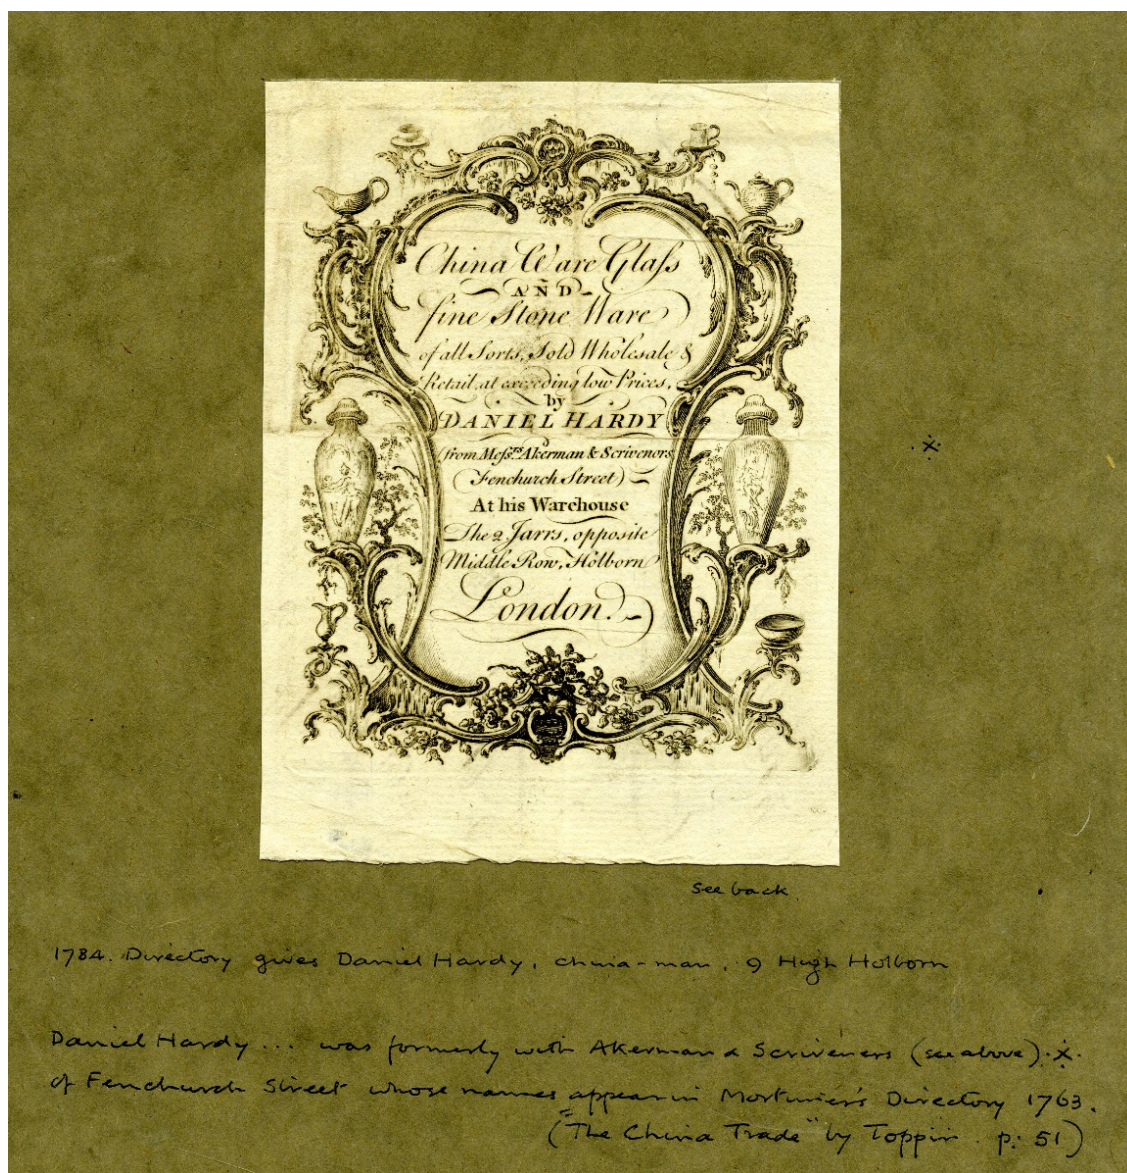 China Ware Glaſs
AND
fine Stone Ware
of all Sorts, Sold Wholesale &
Retail, at exceeding low Prices,
by
DANIEL HARDY
(from Meſsrs. Akerman & Scrivenors
Fenchurch Street)
At his Warehouse
The 2 Jarrs, opposite
Middle Row, Holborn
London.
see back.
1784. Directory gives Daniel Hardy, china-man, 9 High Holborn
Daniel Hardy ... was formerly with Akerman & Scriveners (see above)
of Fenchurch Street whose names appear in Mortimer's Directory 1763.
("The China Trade" by Toppin. p: 51)